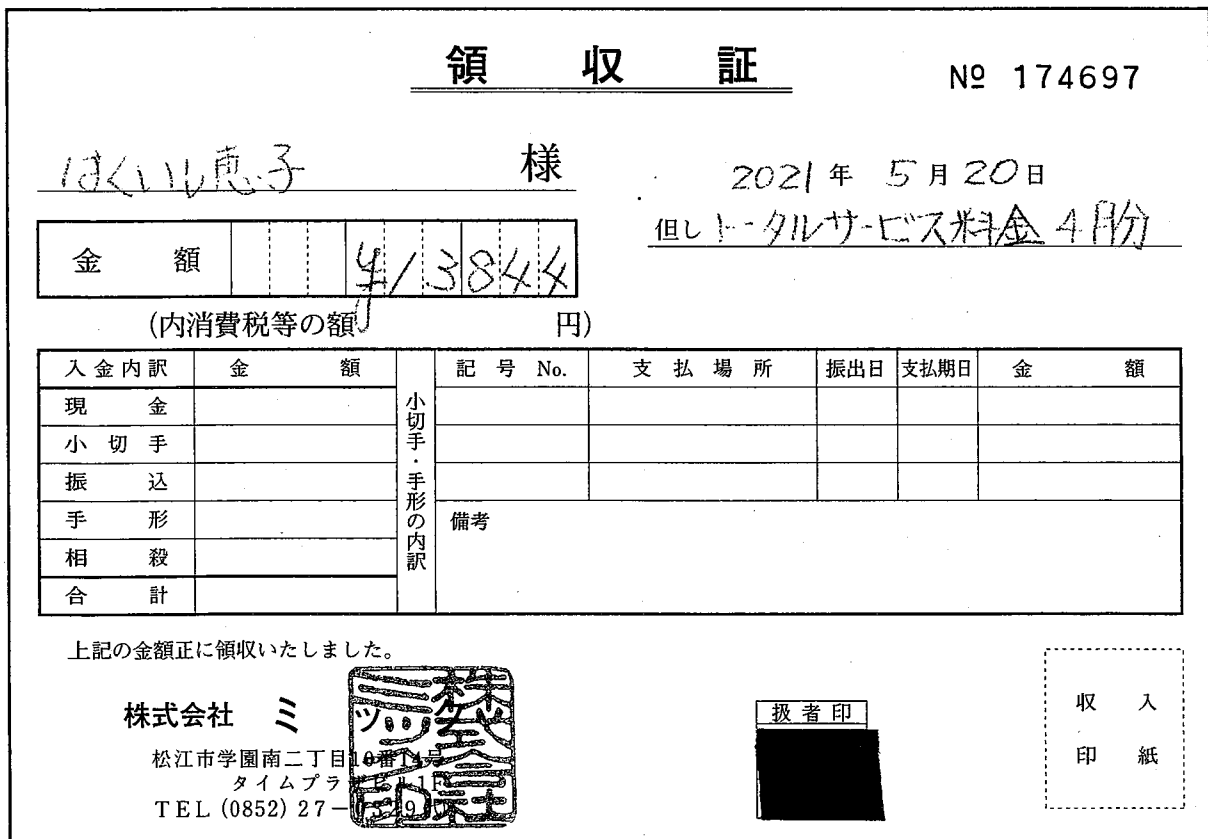 領収証
№ 174697
はくいし恵子 様
2021年 5月20日
但し トータルサービス料金 4月分
金額 ¥13844
(内消費税等の額 円)
入金内訳 金額
現金
小切手
振込
手形
相殺
合計
小切手・手形の内訳
記号No. 支払場所 振出日 支払期日 金額
備考
上記の金額正に領収いたしました。
株式会社 ミック
松江市学園南二丁目10番14号
タイムプラザビル1F
TEL (0852) 27-
扱者印
収入
印紙